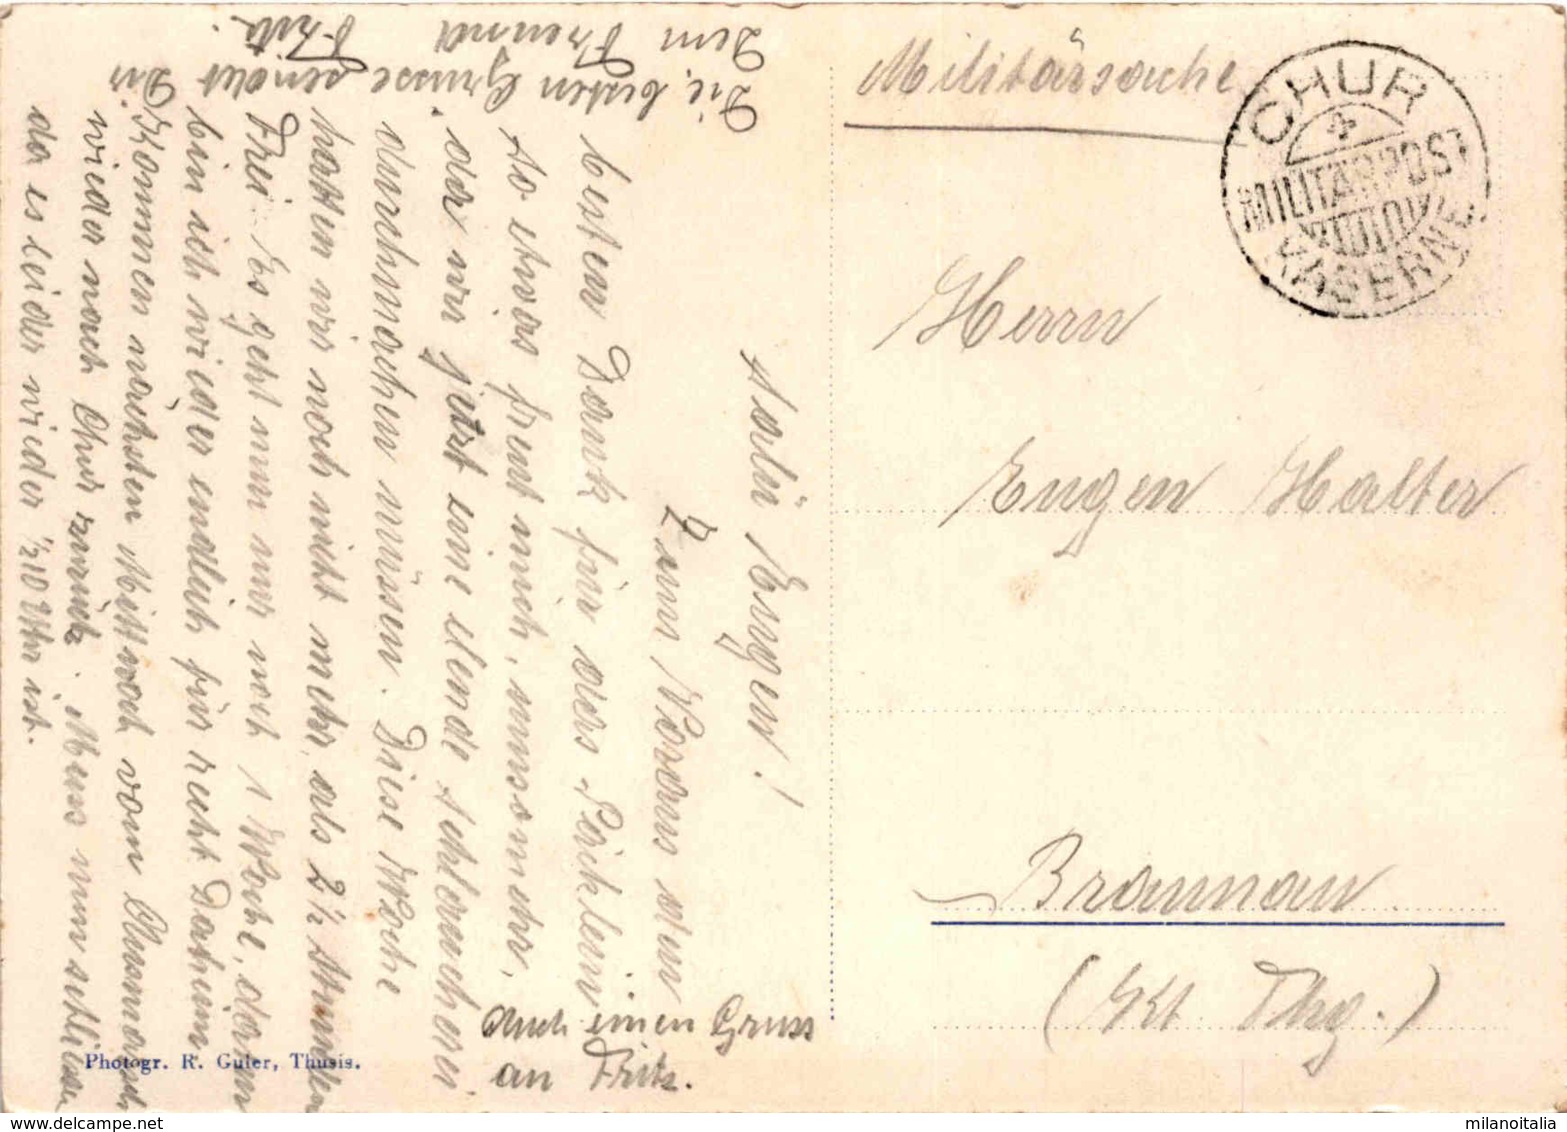 Militärsache
CHUR
MILITÄRPOST
KASERNE
Herrn
Eugen Halter
Braunau
(Kt Thg.)
Salü Eugen!
Zum Voraus den
besten Dank für das Päcklein
So etwas freut mich, umsomehr,
da wir jetzt eine elende Schlaucherei
durchmachen müssen. Diese Woche
hatten wir noch nicht mehr als 2½ Stunden
Frei. Es geht nun nur noch 1 Woche, dann
bin ich wieder endlich für recht Daheim
Kommen nächsten Mittwoch vom Ausmarsch
wieder nach Chur zurück. Muss nun schliessen
da es leider wieder ½10 Uhr ist.
Die besten Grüsse sendet Dir
Dein Freund
Fritz.
Auch einen Gruss
an Fritz.
Photogr. R. Guler, Thusis.
milanoitalia